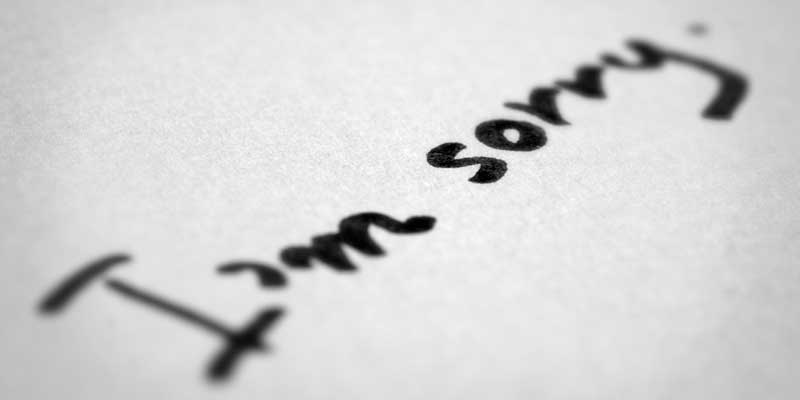 I'm sorry.